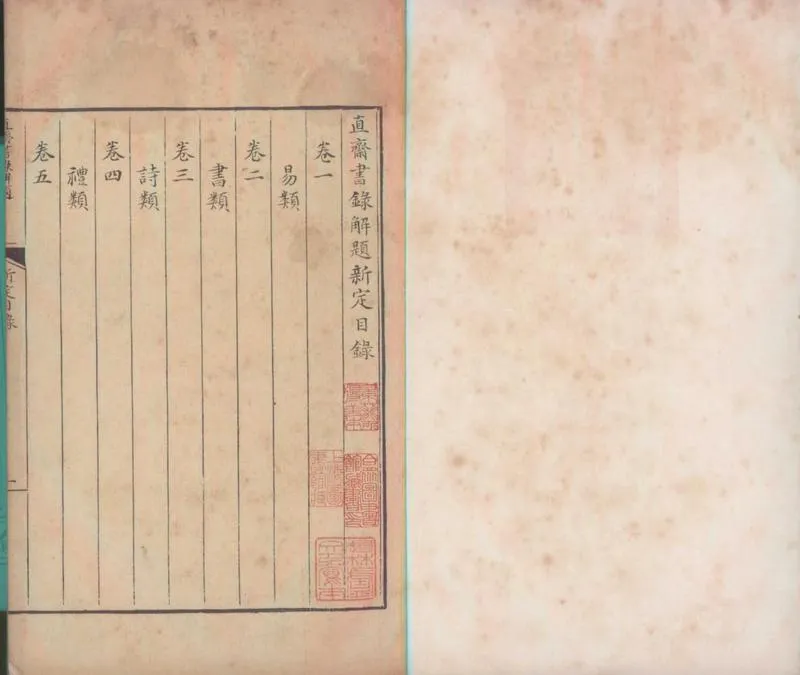 直齋書錄解題新定目錄
卷一
易類
卷二
書類
卷三
詩類
卷四
禮類
卷五
新定目錄